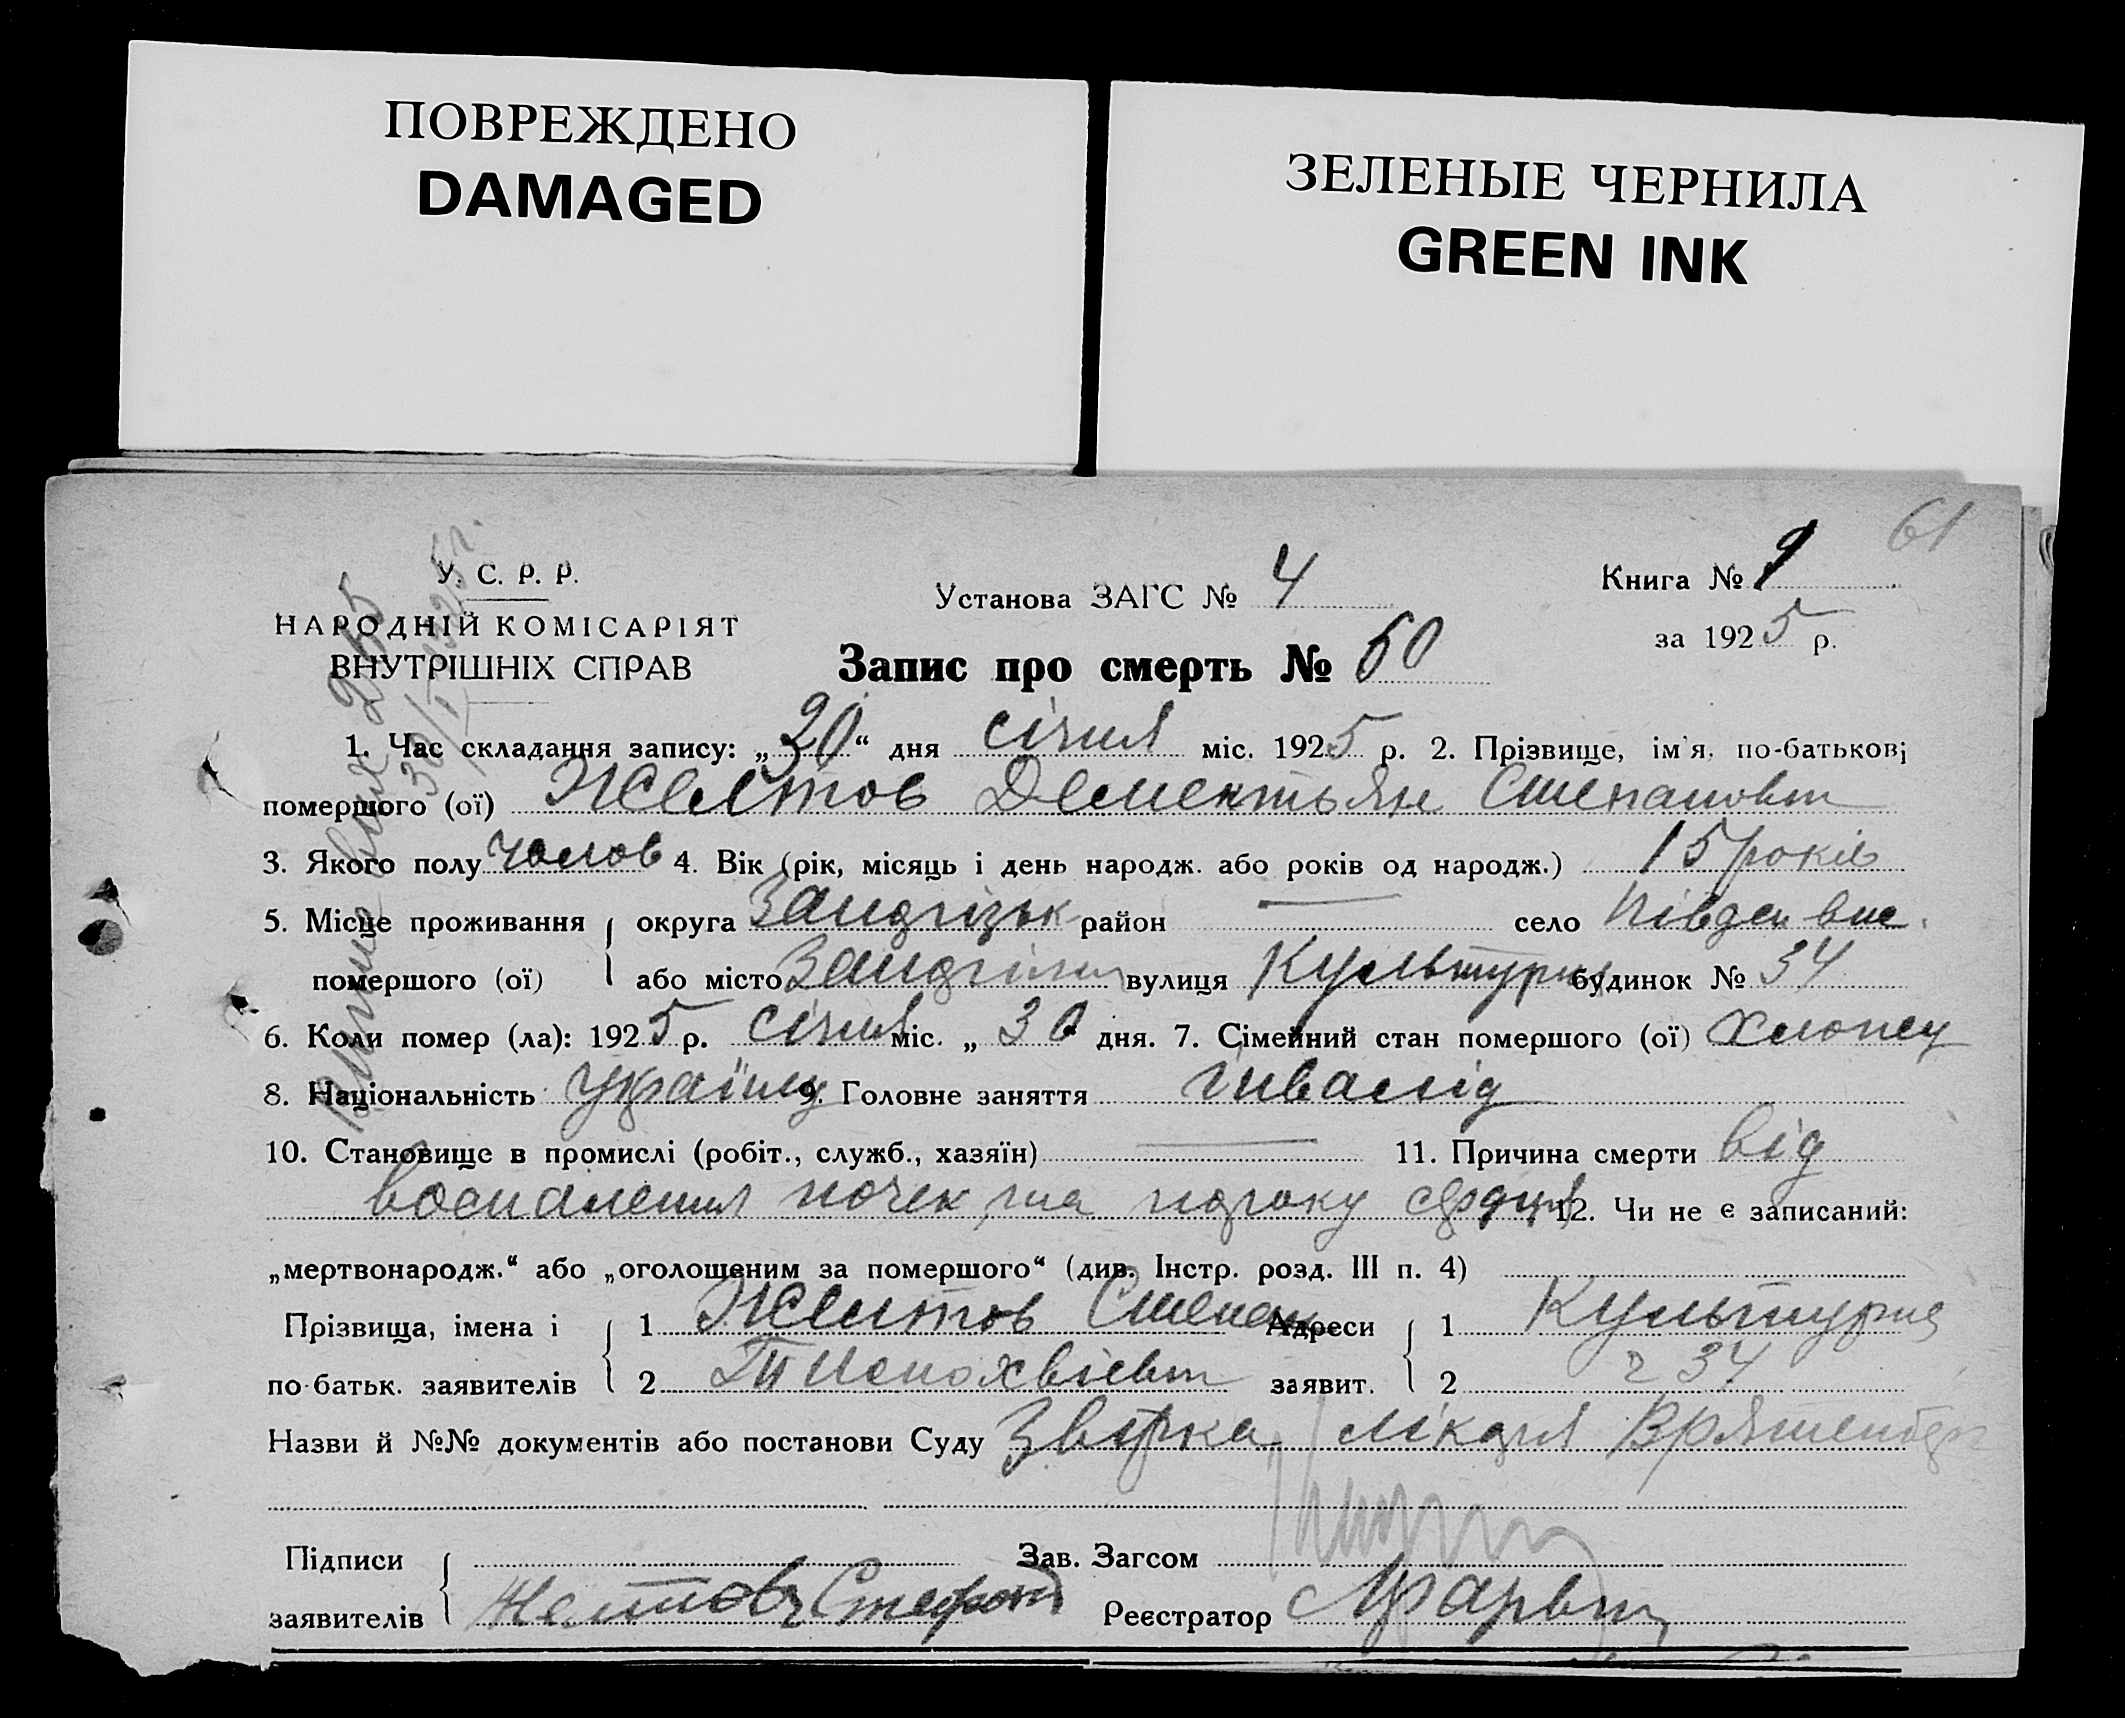 ПОВРЕЖДЕНО
DAMAGED
ЗЕЛЕНЫЕ ЧЕРНИЛА
GREEN INK
61
У. С. Р. Р.
НАРОДНІЙ КОМІСАРІЯТ
ВНУТРІШНІХ СПРАВ
Установа ЗАГС № 4
Книга №
за 1925 р.
Запис про смерть № 60
1. Час складання запису: „30“ дня січня міс. 1925 р. 2. Прізвище, ім'я, по-батькові
помершого (ої) Желтов Дементьян Степанович
3. Якого полу чолов 4. Вік (рік, місяць і день народж. або років од народж.) 15 років
5. Місце проживання округа район — село Півден вис.
помершого (ої) або місто вулиця Культурна будинок № 34
6. Коли помер (ла): 1925 р. січня міс. „ 30 дня. 7. Сімейний стан помершого (ої) хлопец
8. Національність україну 9. Головне заняття інвалід
10. Становище в промислі (робіт., служб., хазяїн) — 11. Причина смерти від
воспаления почек, та пороку сердця 12. Чи не є записаний:
„мертвонародж.“ або „оголошеним за помершого“ (див. Інстр. розд. III п. 4)
Прізвища, імена і 1 Желтов Степан Адреси 1 Культурна
по-батьк. заявителів 2 заявит. 2 ч 34
Назви й №№ документів або постанови Суду лікаря
Підписи Зав. Загсом
заявителів Желтовъ Стефанъ Реєстратор